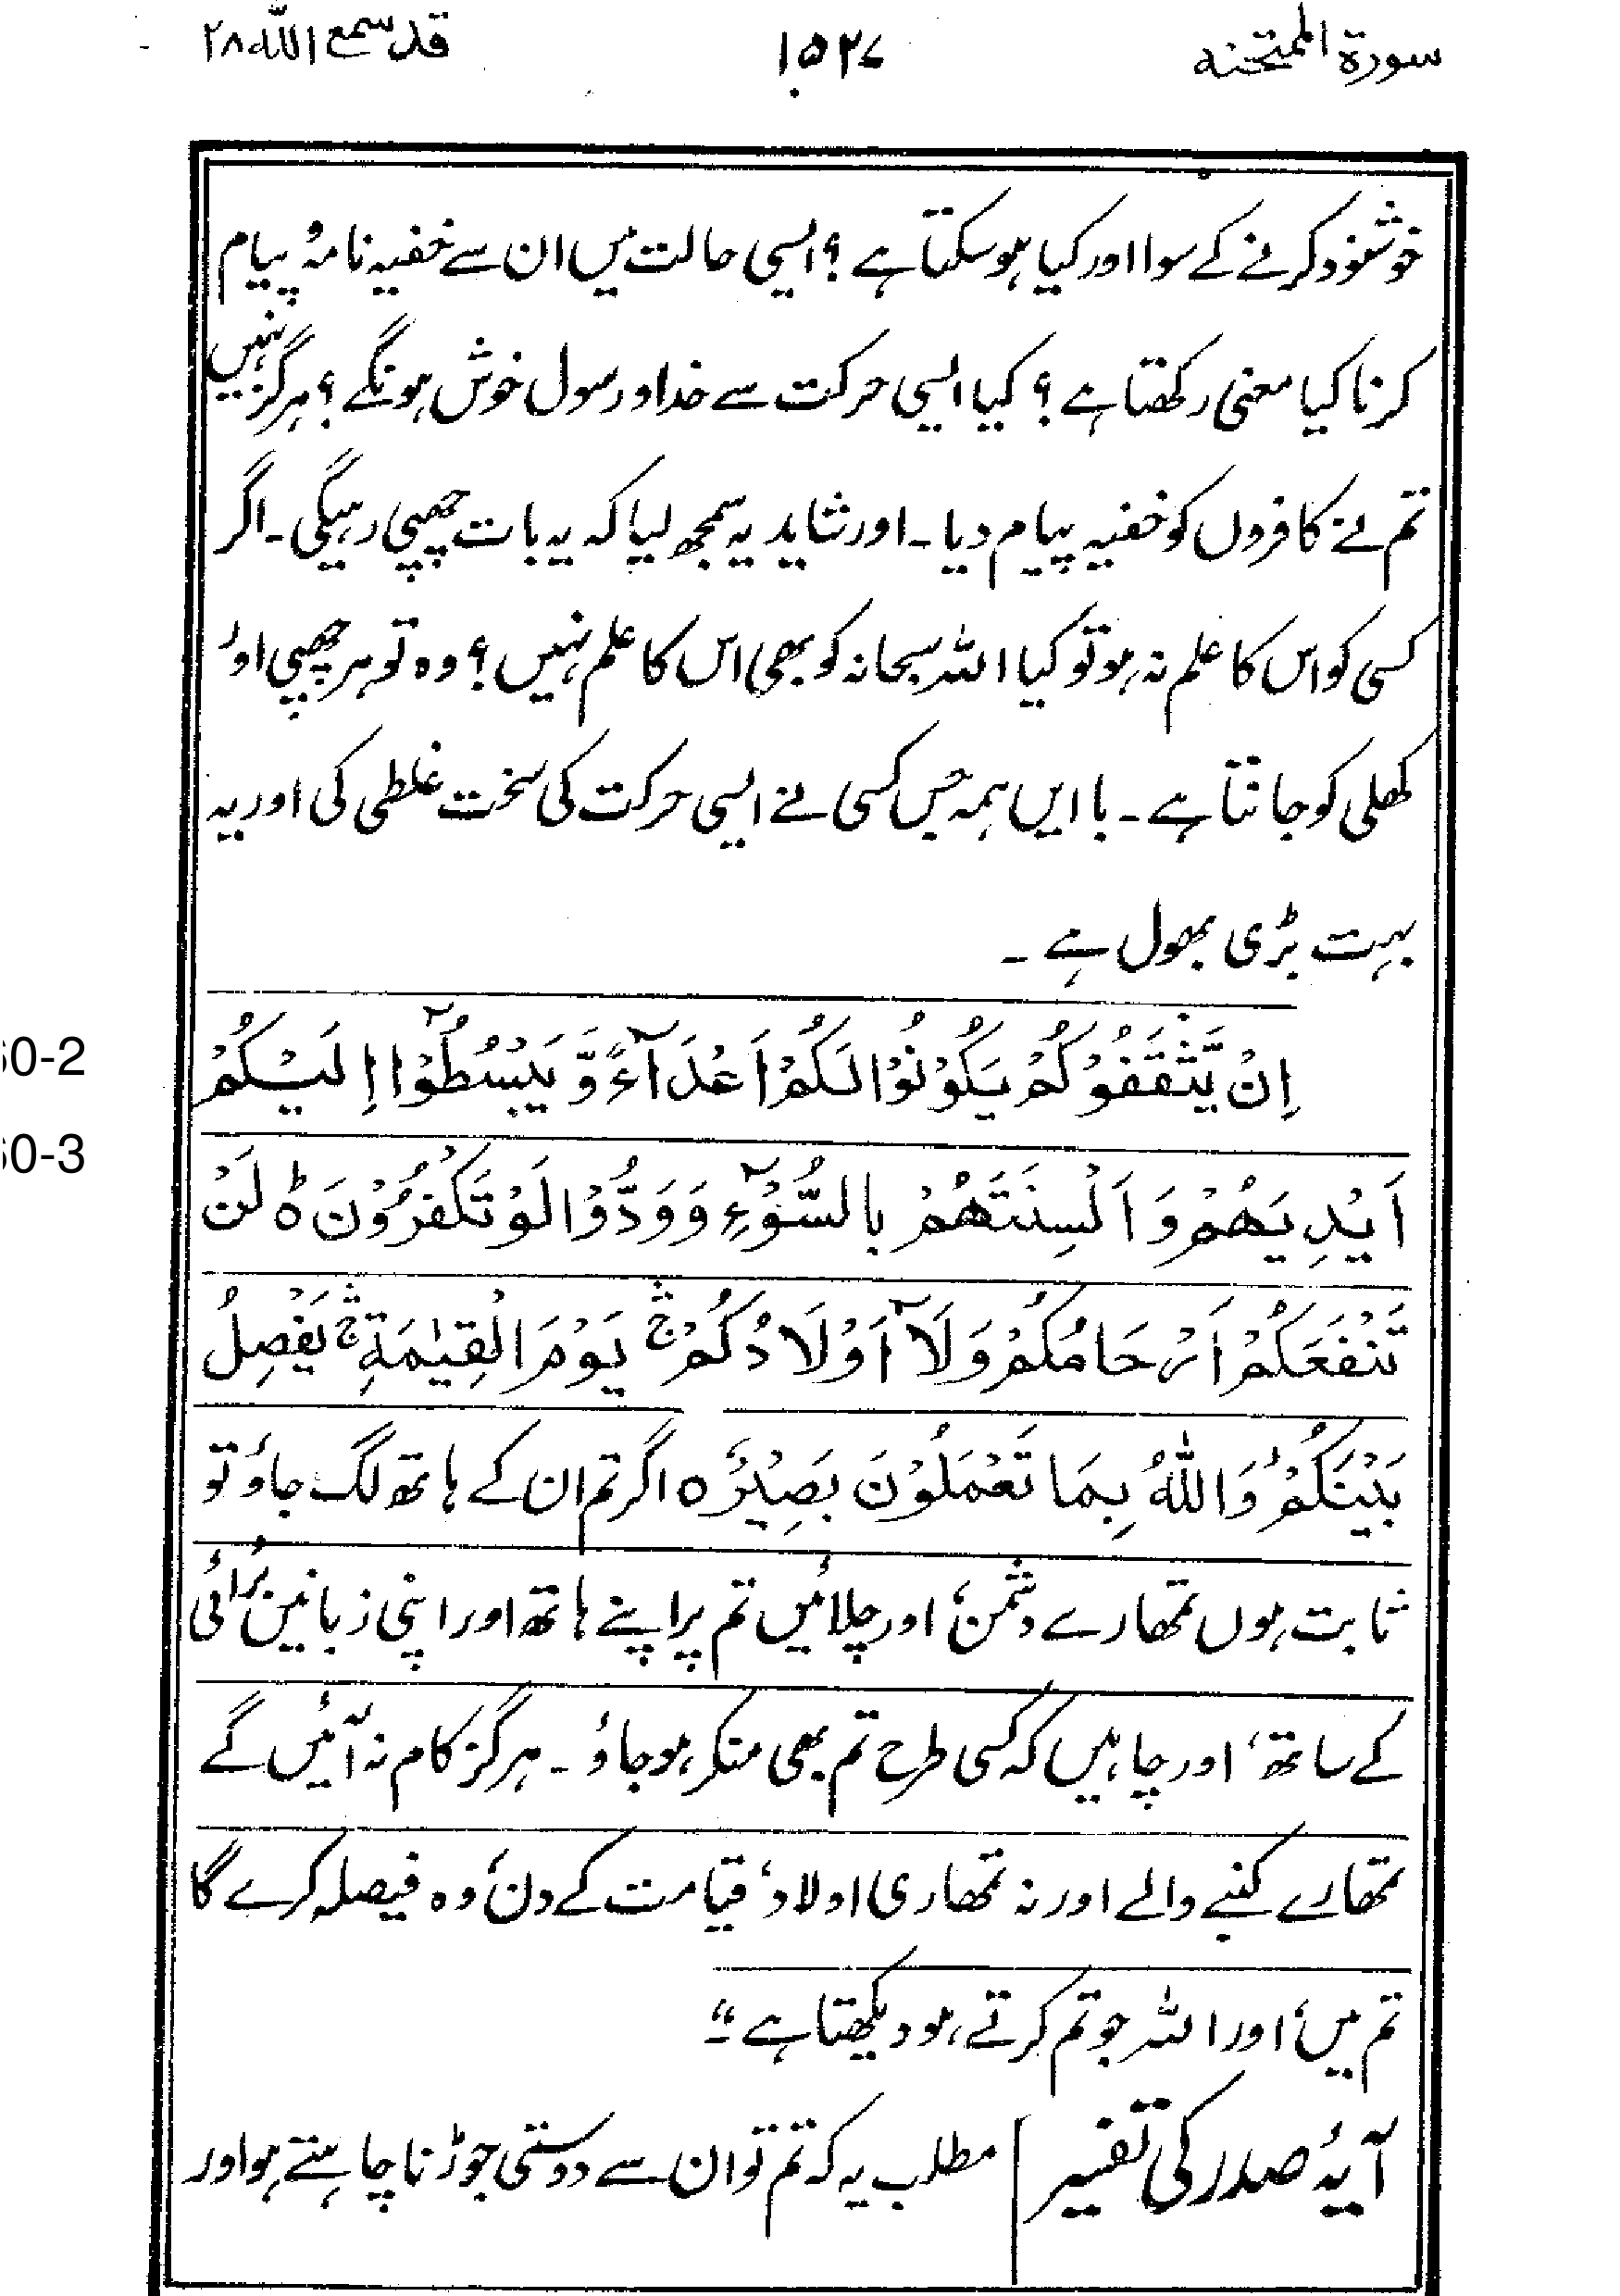 سورۃ الممتحنہ
۱۵۲۷
قد سمع اللہ ۲۸
خوشنود کرنے کے سوا اور کیا ہوسکتا ہے ؟ ایسی حالت میں ان سے خفیہ نامہ و پیام
کرنا کیا معنی رکھتا ہے ؟ کیا ایسی حرکت سے خدا و رسول خوش ہونگے ؟ ہرگز نہیں
تم نے کافروں کو خفیہ پیام دیا ۔ اور شاید یہ سمجھ لیا کہ یہ بات چھپی رہیگی ۔ اگر
کسی کو اس کا علم نہ ہو تو کیا اللہ سبحانہ کو بھی اس کا علم نہیں ؟ وہ تو ہر چھپی اور
کھلی کو جانتا ہے ۔ با ایں ہمہ جس کسی نے ایسی حرکت کی سخت غلطی کی اور یہ
بہت بڑی بھول ہے ۔
60-2
اِنْ يَّثْقَفُوْكُمْ يَكُوْنُوْا لَكُمْ اَعْدَآءً وَّ يَبْسُطُوْٓا اِلَيْكُمْ
60-3
اَيْدِيَهُمْ وَ اَلْسِنَتَهُمْ بِالسُّوْٓءِ وَ وَدُّوْا لَوْ تَكْفُرُوْنَ ؕ لَنْ
تَنْفَعَكُمْ اَرْحَامُكُمْ وَلَآ اَوْلَادُكُمْ ۛۚ يَوْمَ الْقِيٰمَةِ ۛۚ يَفْصِلُ
بَيْنَكُمْ ؕ وَاللّٰهُ بِمَا تَعْمَلُوْنَ بَصِيْرٌ ہ اگر تم ان کے ہاتھ لگ جاؤ تو
ثابت ہوں تمھارے دشمن، اور چلائیں تم پر اپنے ہاتھ اور اپنی زبانیں بُرائی
کے ساتھ، اور چاہیں کہ کسی طرح تم بھی منکر ہو جاؤ ۔ ہرگز کام نہ آئیں گے
تمھارے کنبے والے اور نہ تمھاری اولاد، قیامت کے دن، وہ فیصلہ کرے گا
تم میں، اور اللہ جو تم کرتے ہو دیکھتا ہے “۔
آیۂ صدر کی تفسیر | مطلب یہ کہ تم تو ان سے دوستی جوڑنا چاہتے ہو اور